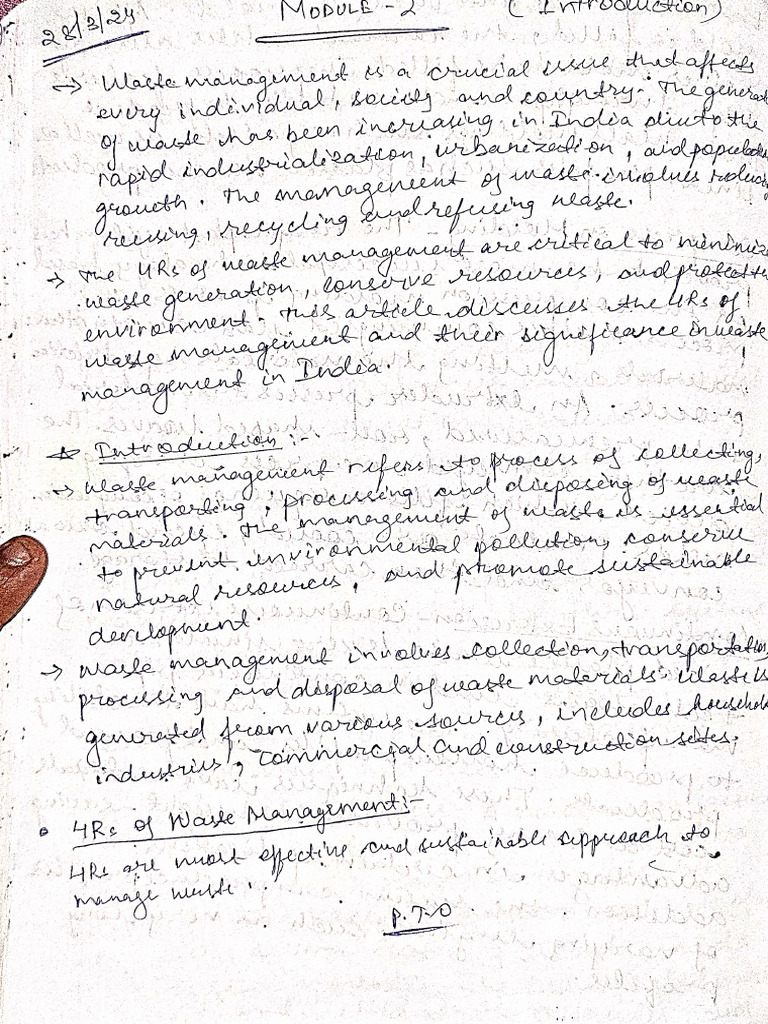 28/3/24 MODULE - 2 (Introduction)
→ Waste management is a crucial issue that affects
every individual, society and country. The generat
of waste has been increasing in India due to the
rapid industrialization, urbanization, and populatio
growth. The management of waste involves reducing
reusing, recycling and refusing waste.
→ The 4Rs of waste management are critical to minimize
waste generation, conserve resources, and protect the
environment. This article discusses the 4Rs of
waste management and their significance in waste
management in India.
☆ Introduction:-
→ Waste management refers to process of collecting,
transporting, processing and disposing of waste
materials. The management of waste is essential
to prevent environmental pollution, conserve
natural resources, and promote sustainable
development.
→ Waste management involves collection, transportation,
processing and disposal of waste materials. Waste is
generated from various sources, includes household
industries, commercial and construction sites.
• 4Rs of Waste Management:-
4Rs are most effective and sustainable approach to
manage waste.
P.T.O